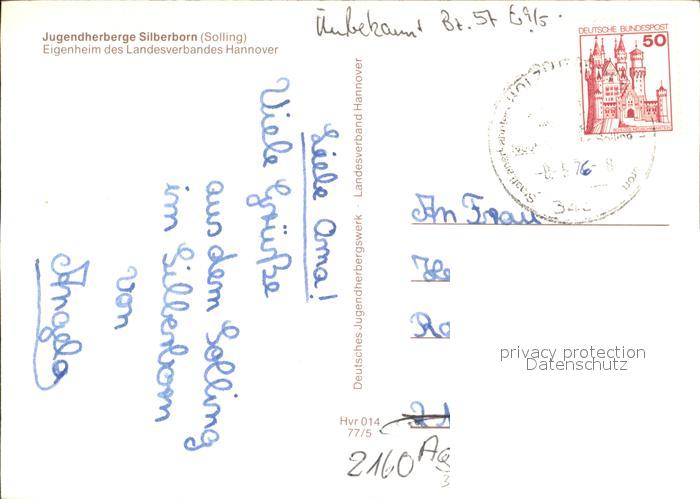 Jugendherberge Silberborn (Solling)
Eigenheim des Landesverbandes Hannover
Unbekannt Bz. 57
DEUTSCHE BUNDESPOST
50
Liebe Oma!
Viele Grüße
aus dem Solling
im Silberborn
von
Angela
Deutsches Jugendherbergswerk · Landesverband Hannover
An Frau
He
Ro
privacy protection
Datenschutz
Hvr 014
77/5
2160